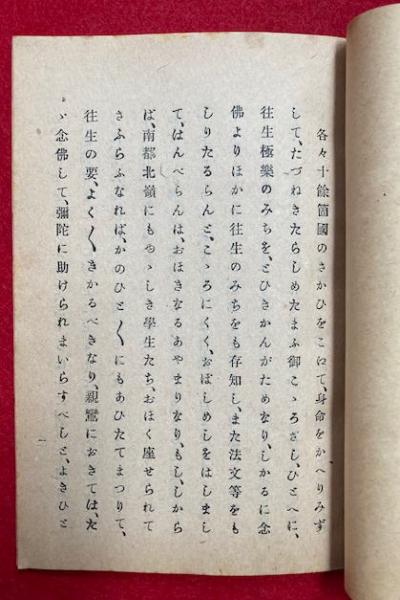 各々十餘箇國のさかひをこにて、身命をかへりみず
して、たづねきたらしめたまふ御こゝろざし、ひとへに、
往生極樂のみちを、とひきかんがためなり、しかるに念
佛よりほかに往生のみちをも存知し、また法文等をも
しりたるらんと、こゝろにくく、おぼしめしをはしまし
て、はんべらんは、おほきなるあやまりなり、もし、しから
ば、南都北嶺にもやゝしき學生たち、おほく座せられて
さふらふなれば、かのひと〳〵にもあひたてまつりて、
往生の要、よく〳〵きかるべきなり、親鸞におきては、た
ゞ念佛して、彌陀に助けられまいらすべしと、よきひと
一